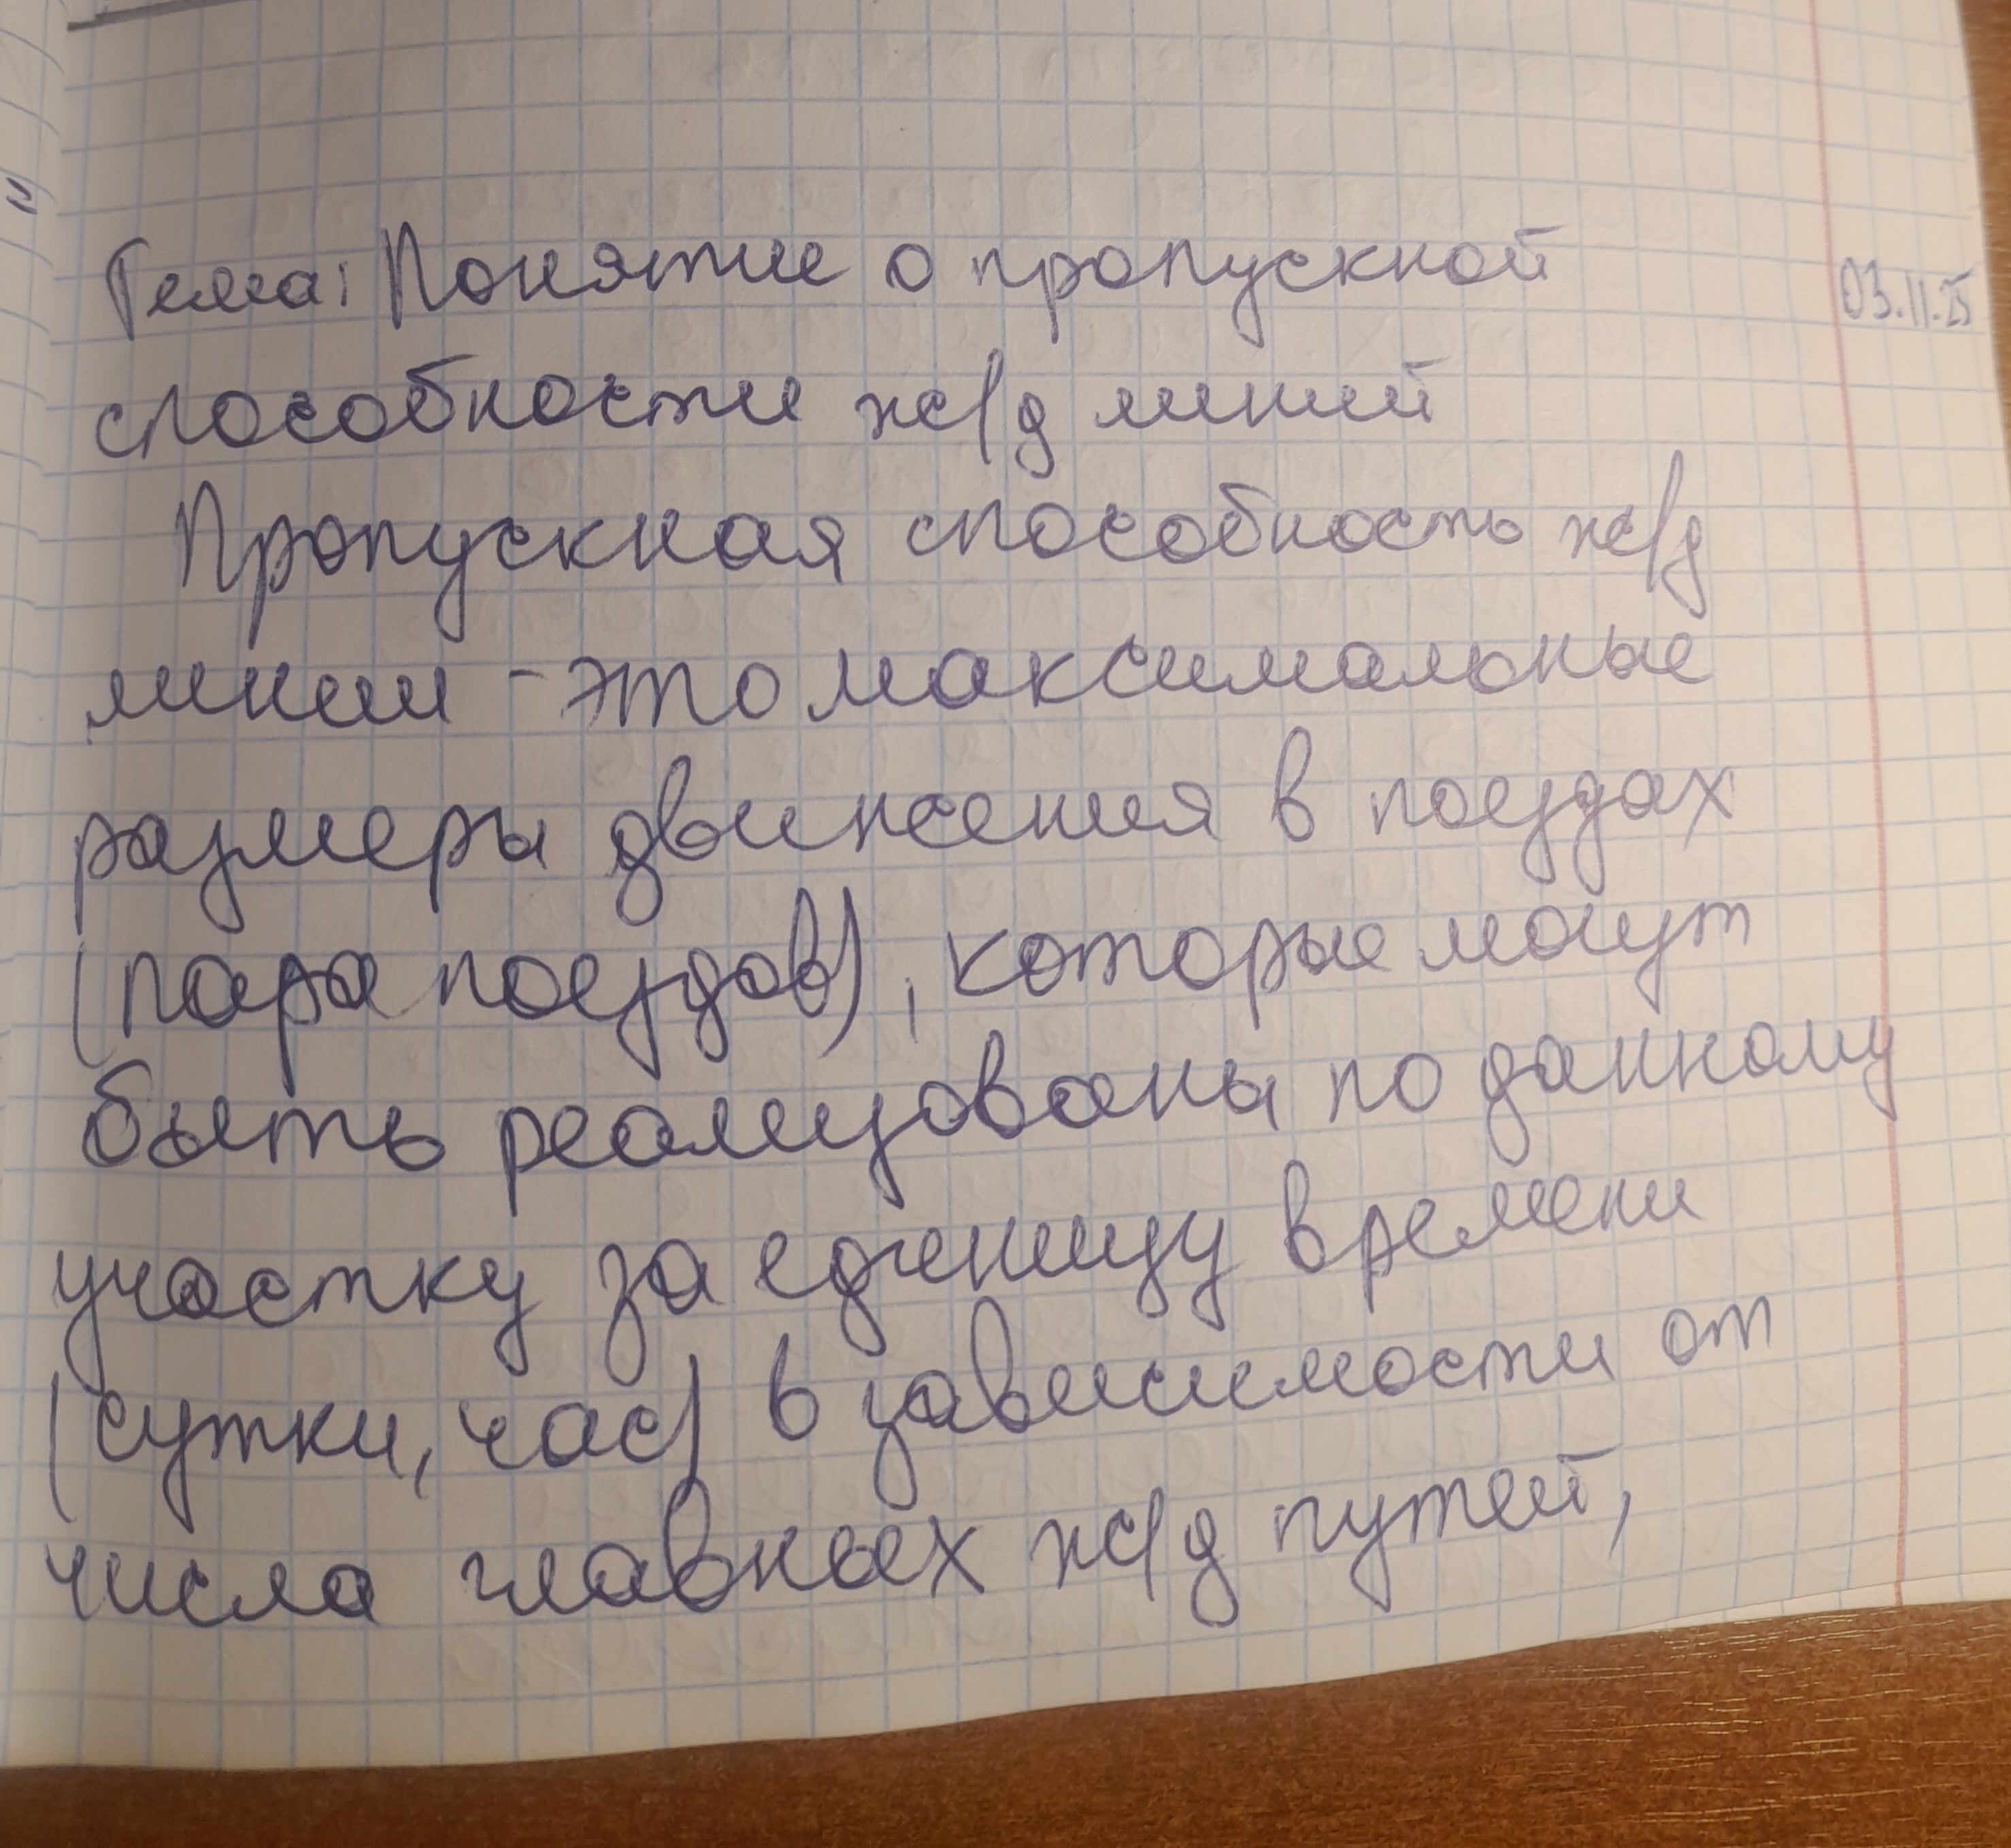 Тема: Понятие о пропускной
03.11.25
способности ж/д линий
Пропускная способность ж/д
линии - это максимальные
размеры движения в поездах
(пара поездов), которые могут
быть реализованы по данному
участку за единицу времени
(сутки, час) в зависимости от
числа главных ж/д путей,